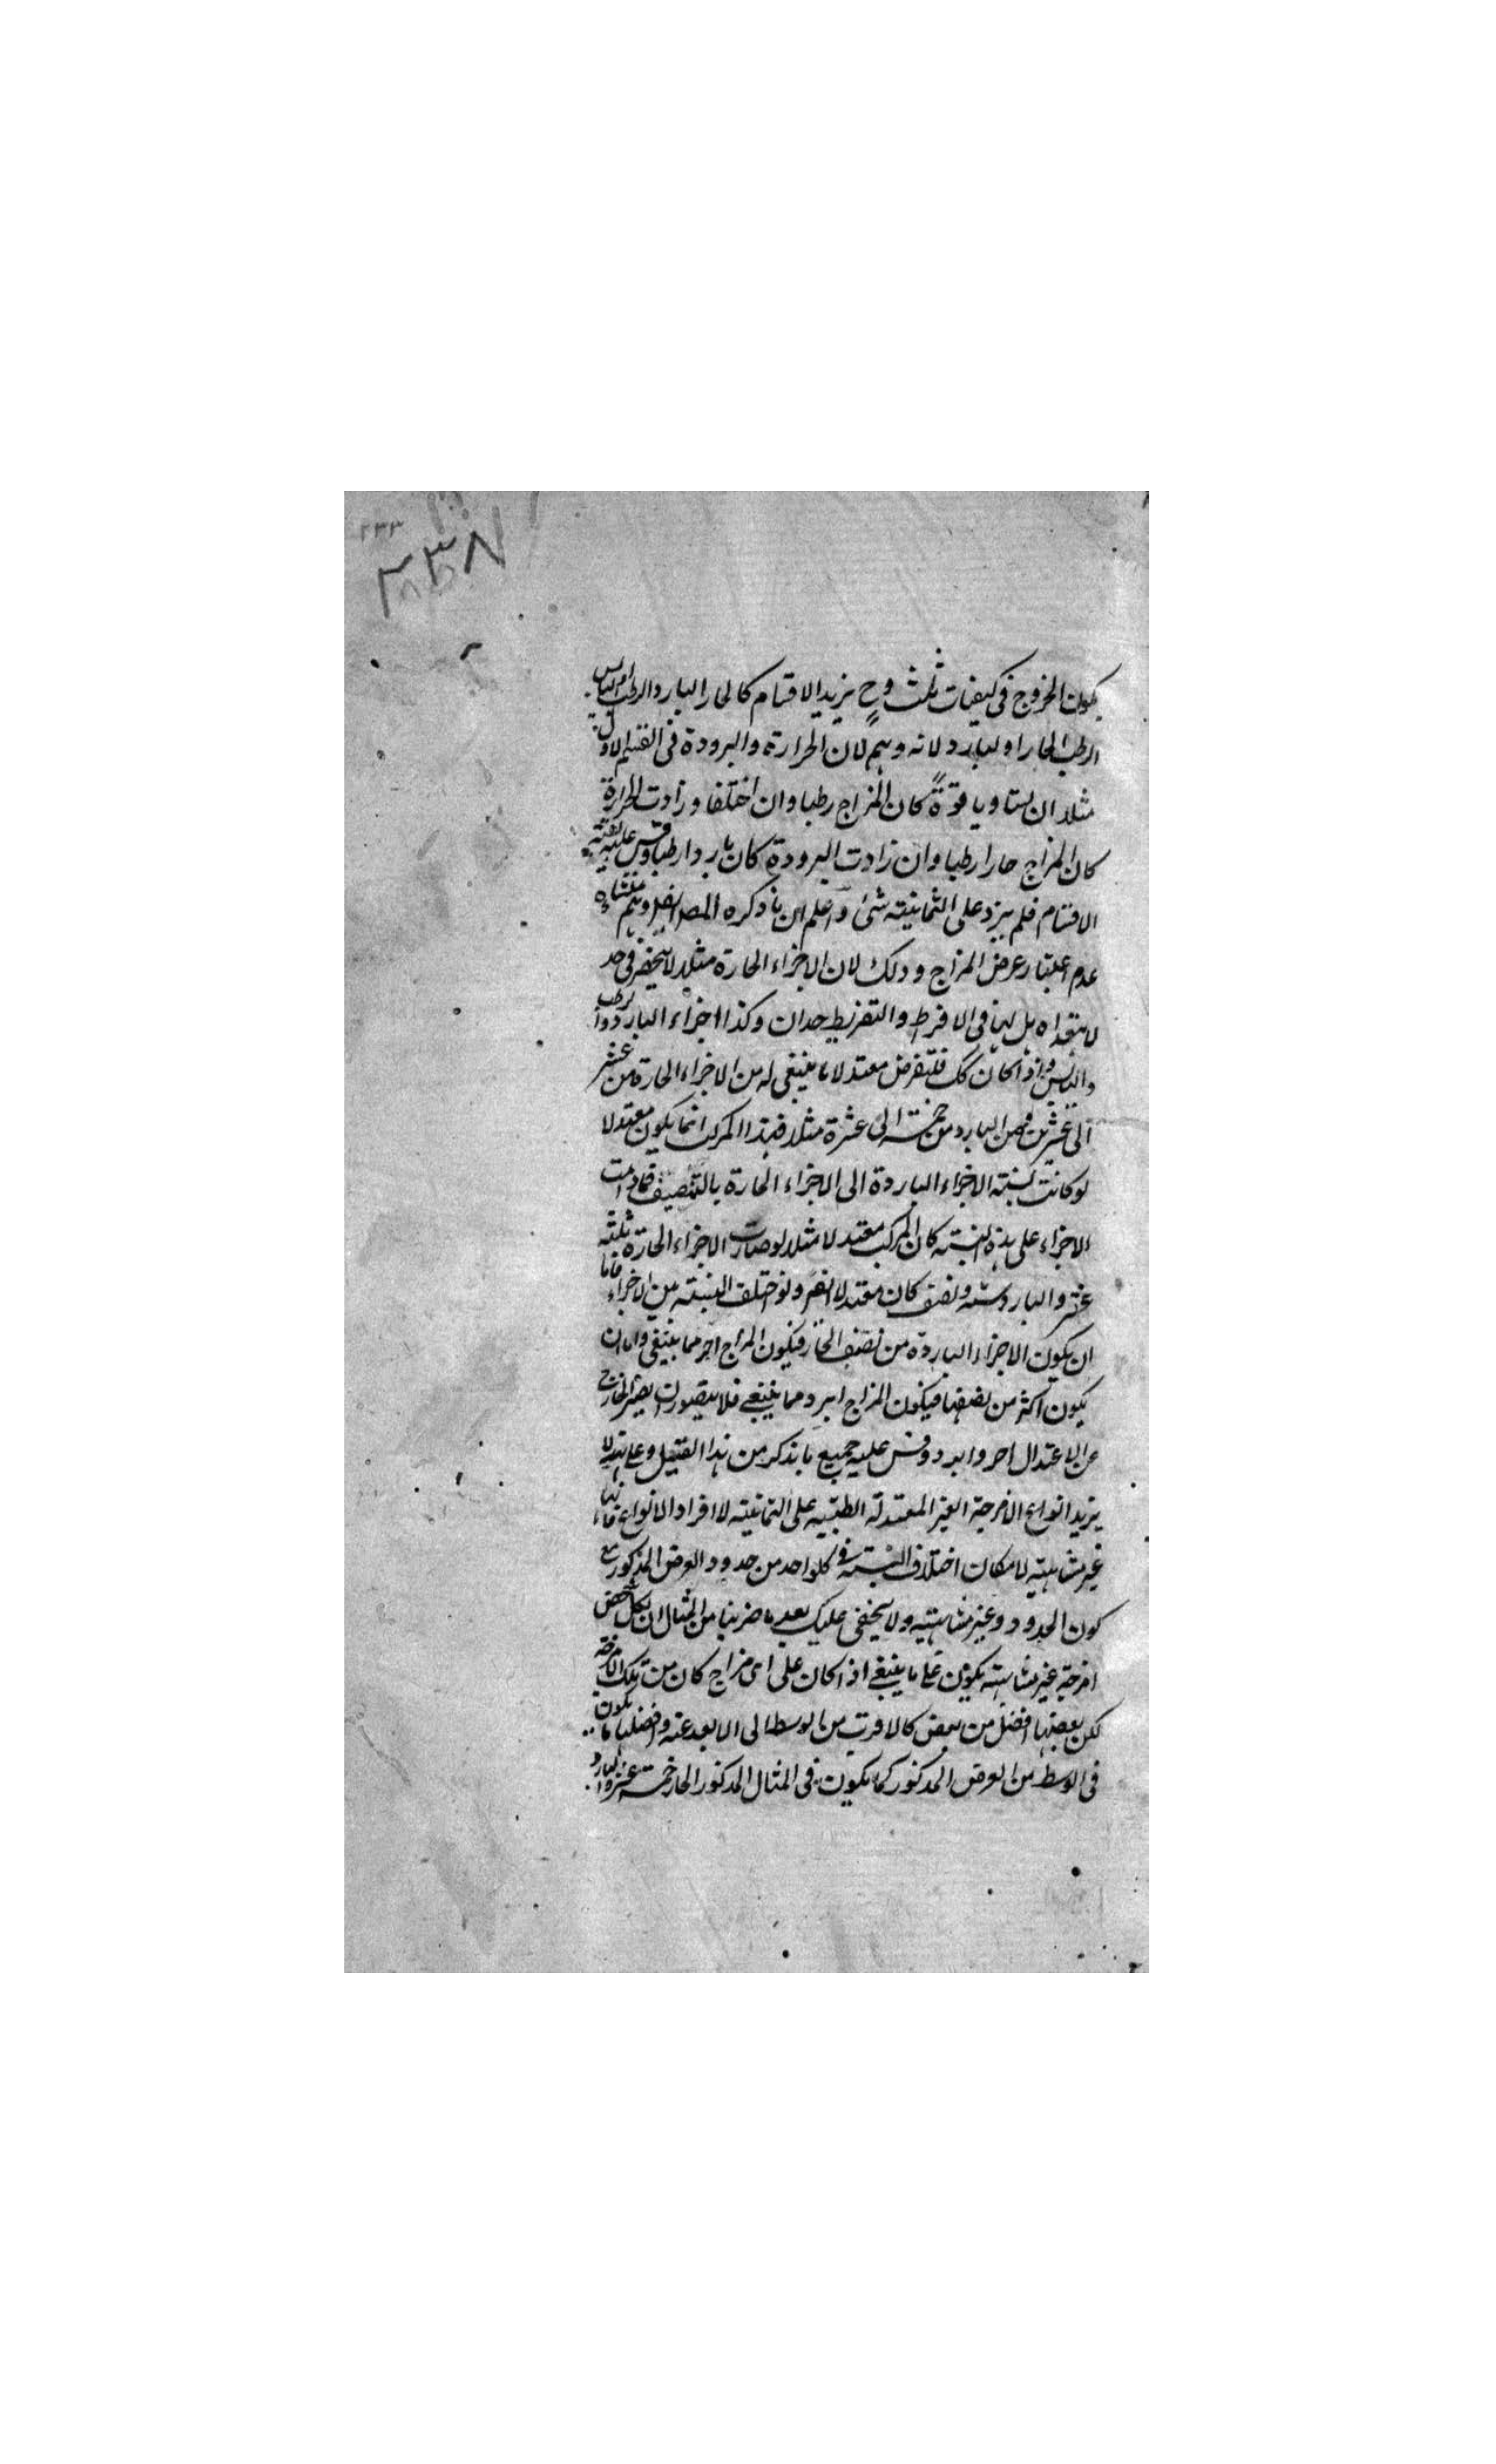 ٢٣٣
٢٣٨
يكون الخروج فى كيفيات ثلث وح يزيد الاقسام كالحار البارد الرطب او اليابس
الرطب الحار او البارد لانه وهم لان الحرارة والبرودة فى القسم الاول
مثلا ان يساويا قوة كان المزاج رطبا وان اختلفا وزادت الحرارة
كان المزاج حارا رطبا وان زادت البرودة كان باردا رطبا وقس عليه بقية
الاقسام فلم يزد على الثمانية شئ واعلم ان ما ذكره المص ايضا وهم منشاه
عدم اعتبار عرض المزاج وذلك لان الاجزاء الحارة مثلا لا ينحصر فى حد
لا يتعداه بل لها فى الافرط والتفريط حدان وكذا اجزاء البارد والرطب
واليابس واذا كان كك فلنفرض معتدلا ما ينبغى له من الاجزاء الحارة من عشر
الى عشرين ومن البارد من خمسة الى عشرة مثلا فهذا المركب انما يكون معتدلا
لو كانت نسبة الاجزاء الباردة الى الاجزاء الحارة بالتنصيف فما دامت
الاجزاء على هذه النسبة كان المركب معتدلا مثلا لو صارت الاجزاء الحارة ثلثة
عشر والبارد ستة ونصف كان معتدلا ايضا ولو اختلف النسبة بين الاجزاء فاما
ان يكون الاجزاء الباردة من نصف الحار فيكون المزاج احر مما ينبغى واما ان
يكون اكثر من نصفها فيكون المزاج ابرد مما ينبغى فلا يتصور ان يصير الخارج
عن الاعتدال احر وابرد وقس عليه جميع ما يذكر من هذا القبيل وعلى هذا لا
يزيد انواع الامزجة الغير المعتدلة الطبية على الثمانية لا افراد الانواع فانها
غير متناهية لامكان اختلاف النسبة فى كل واحد من حدود العرض المذكور مع
كون الحدود غير متناهية ولا يخفى عليك بعد ما ضربنا من المثال ان لكل شخص
امزجة غير متناهية يكون على ما ينبغى اذا كان على اى مزاج كان من تلك الامزجة
لكن بعضها افضل من بعض كالاقرب من الوسط الى الابعد عنه وافضلها ما يكون
فى الوسط من العرض المذكور كما يكون فى المثال المذكور الحار خمسة عشر والبارد